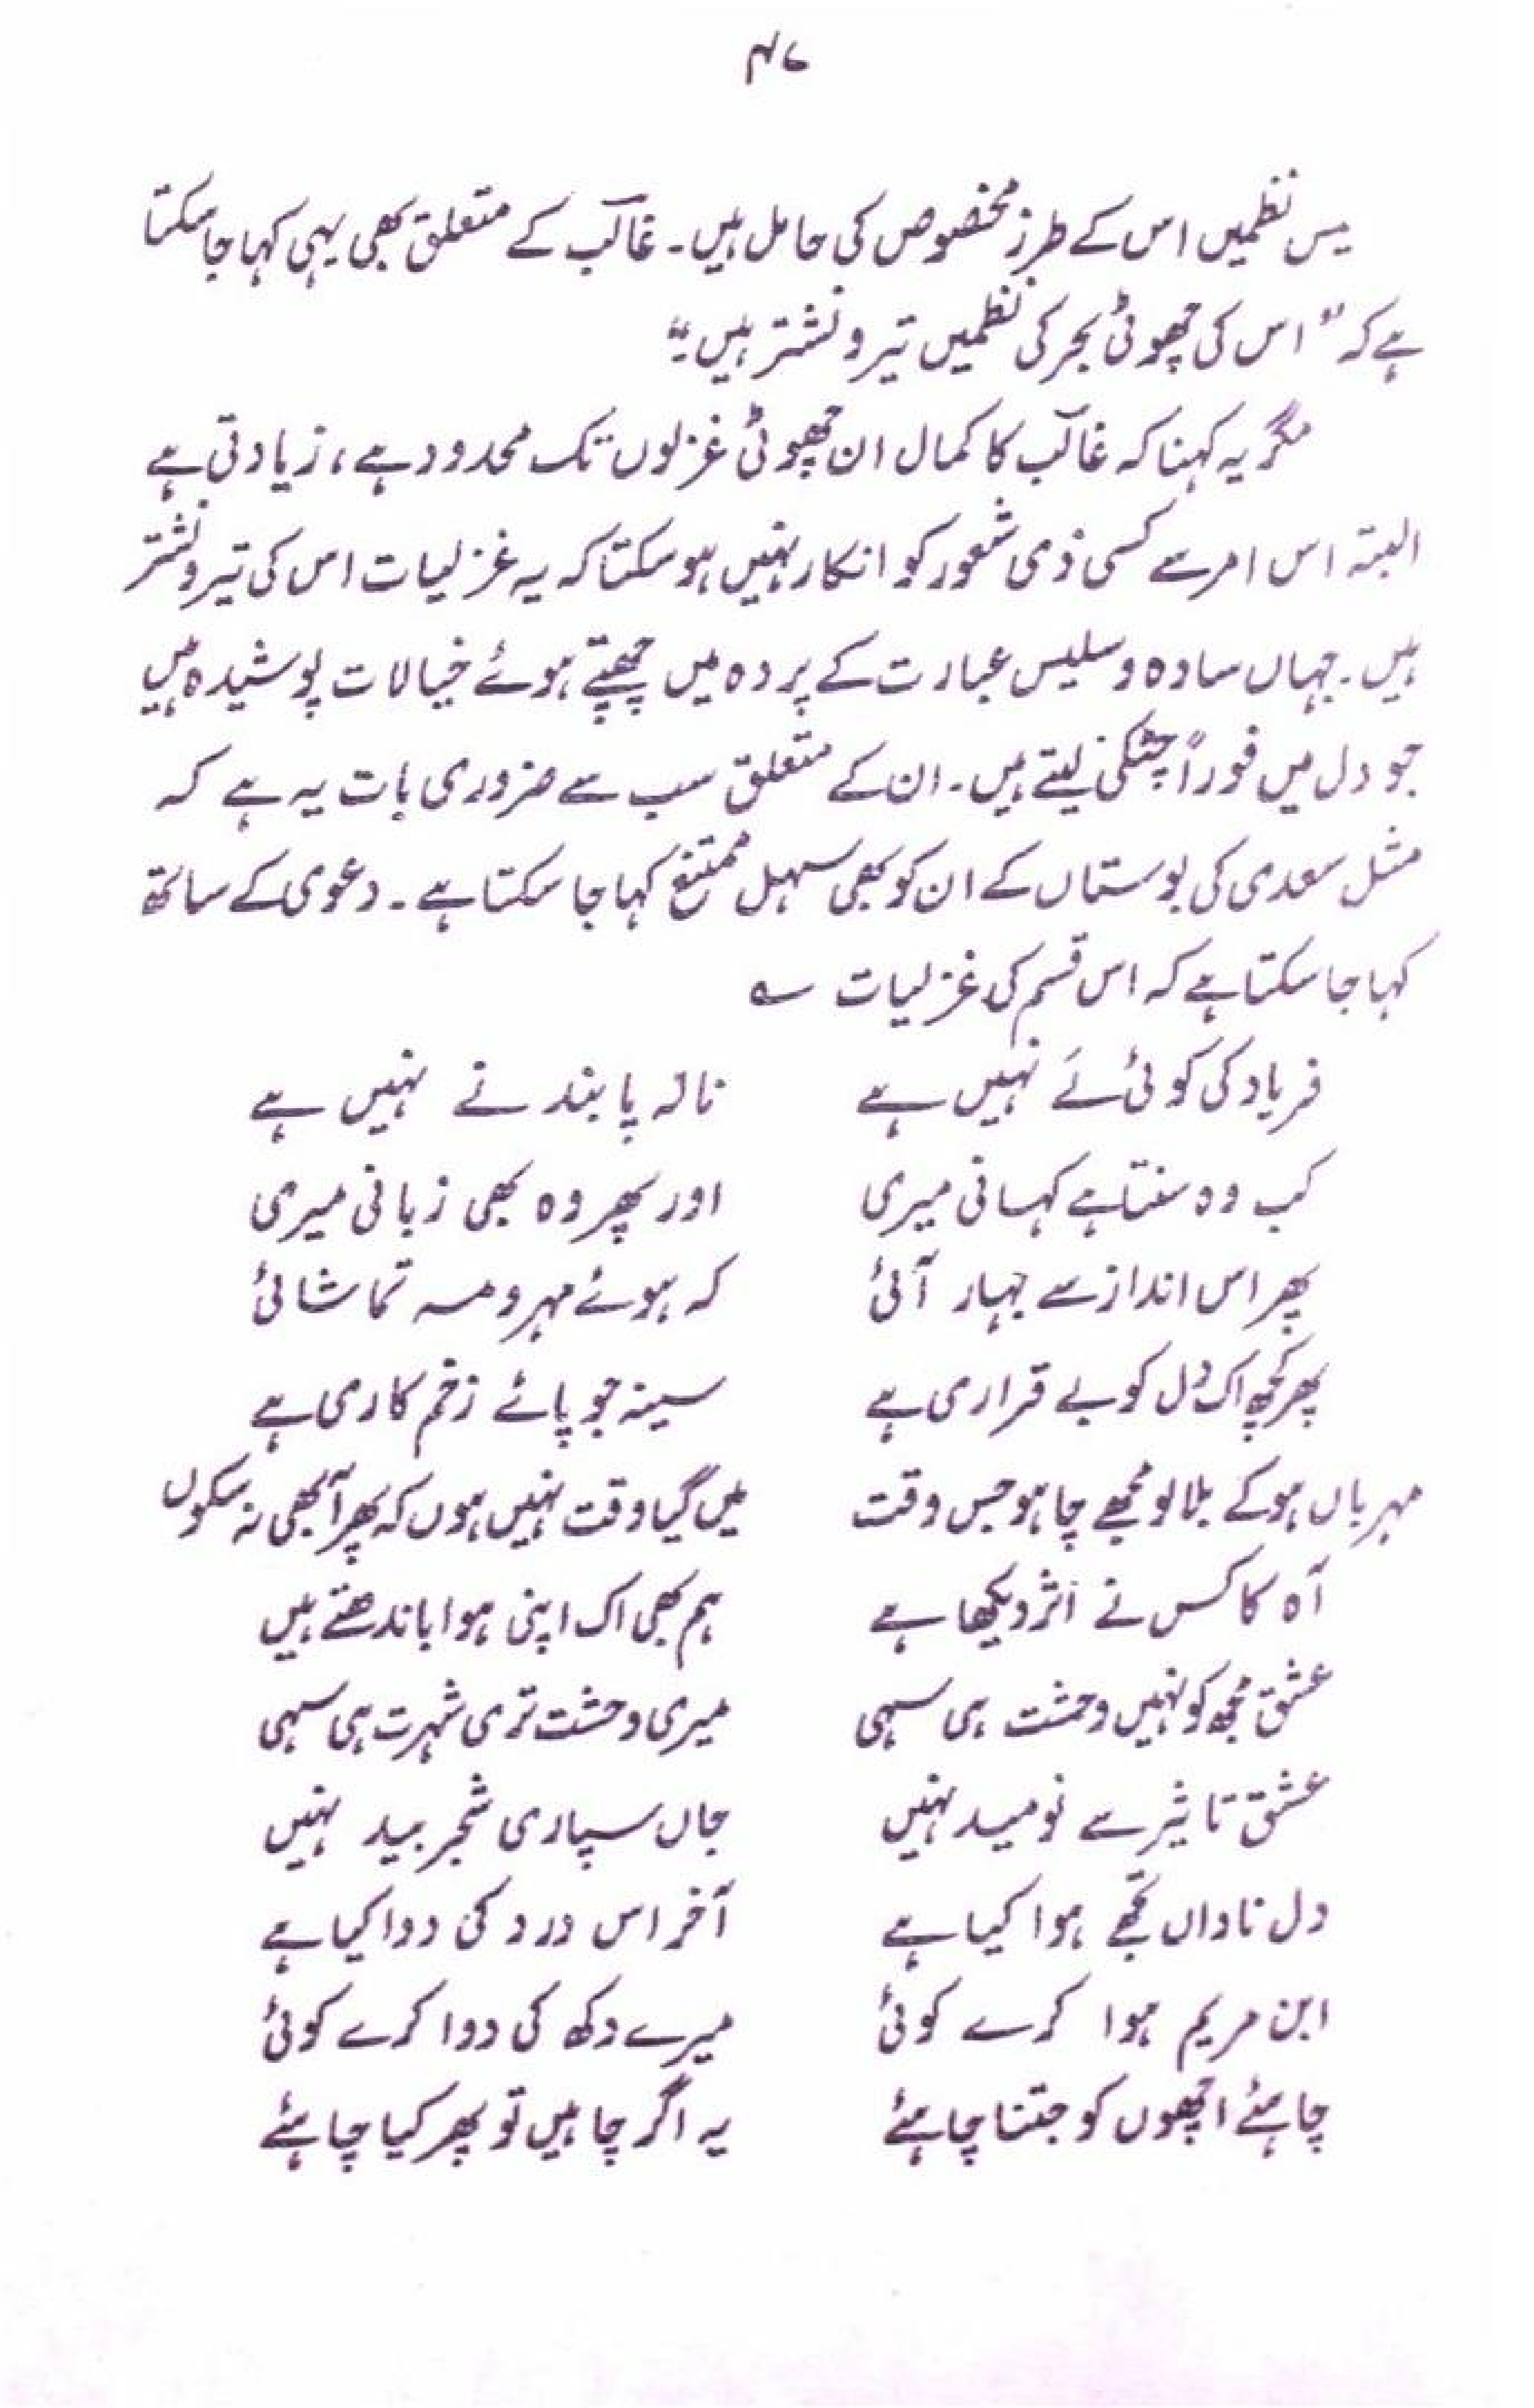 ۴۷
یس نظمیں اس کے طرز مخصوص کی حامل ہیں۔ غالب کے متعلق بھی یہی کہا جا سکتا
ہے کہ "اس کی چھوٹی بحر کی نظمیں تیر و نشتر ہیں۔"
مگر یہ کہنا کہ غالب کا کمال ان چھوٹی غزلوں تک محدود ہے، زیادتی ہے
البتہ اس امر سے کسی ذی شعور کو انکار نہیں ہو سکتا کہ یہ غزلیات اس کی تیر و نشتر
ہیں۔ جہاں سادہ و سلیس عبارت کے پردہ میں چھپتے ہوئے خیالات پوشیدہ ہیں
جو دل میں فوراً چٹکی لیتے ہیں۔ ان کے متعلق سب سے ضروری بات یہ ہے کہ
مثل سعدی کی بوستاں کے ان کو بھی سہل ممتنع کہا جا سکتا ہے۔ دعوی کے ساتھ
کہا جا سکتا ہے کہ اس قسم کی غزلیات ؎
فریاد کی کوئی لَے نہیں ہے نالہ پابند نے نہیں ہے
کب وہ سنتا ہے کہانی میری اور پھر وہ بھی زبانی میری
پھر اس انداز سے بہار آئی کہ ہوئے مہر و مہ تماشائی
پھر کچھ اک دل کو بے قراری ہے سینہ جو پائے زخم کاری ہے
مہرباں ہو کے بلا لو مجھے چاہو جس وقت میں گیا وقت نہیں ہوں کہ پھر آ بھی نہ سکوں
آہ کا کس نے اثر دیکھا ہے ہم بھی اک اپنی ہوا باندھتے ہیں
عشق مجھ کو نہیں وحشت ہی سہی میری وحشت تری شہرت ہی سہی
عشق تاثیر سے نومید نہیں جاں سپاری شجر بید نہیں
دل ناداں تجھے ہوا کیا ہے آخر اس درد کی دوا کیا ہے
ابن مریم ہوا کرے کوئی میرے دکھ کی دوا کرے کوئی
چاہئے اچھوں کو جتنا چاہئے یہ اگر چاہیں تو پھر کیا چاہئے